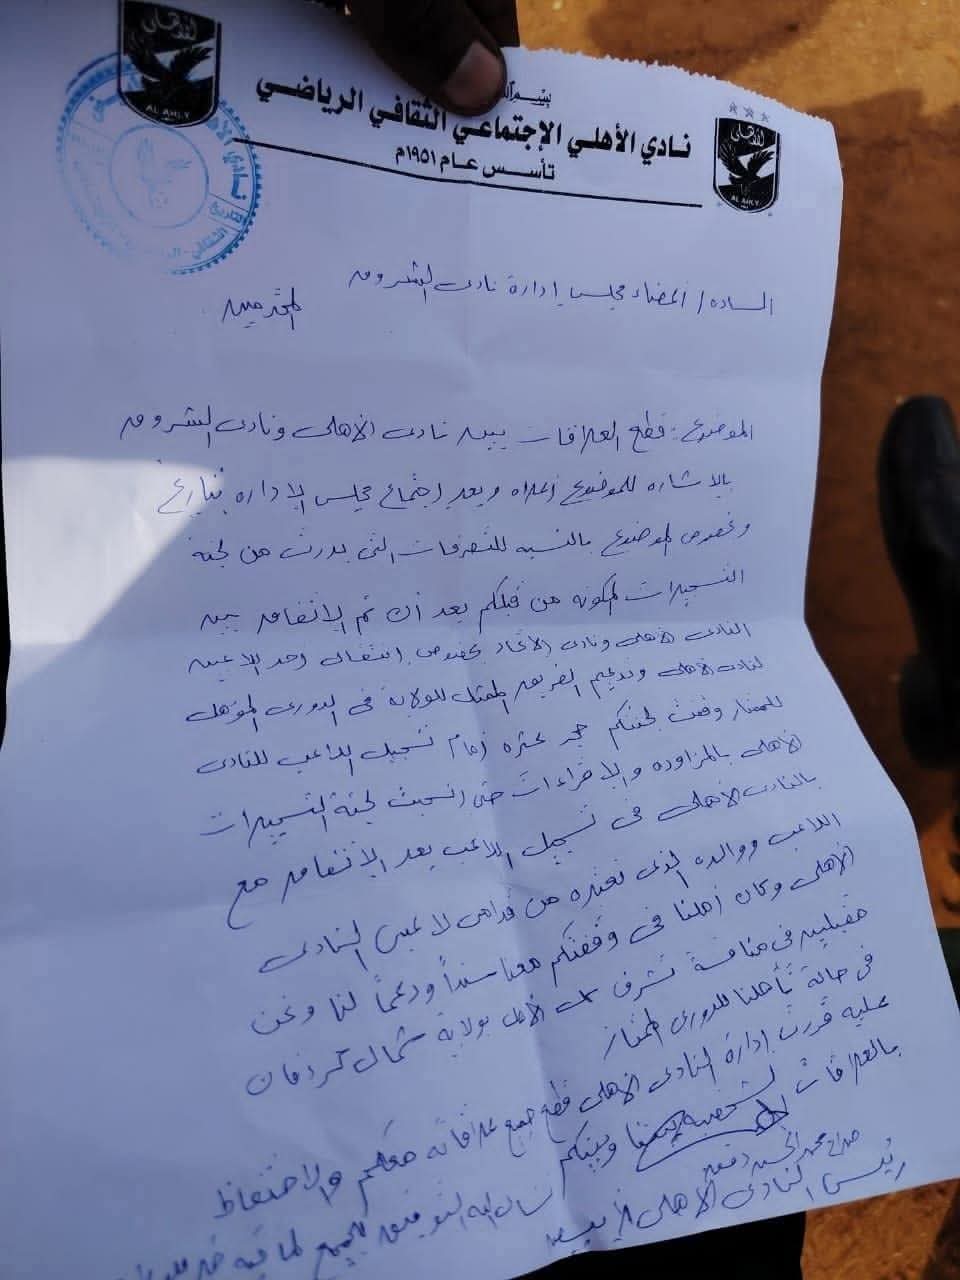 بسم الله
نادي الأهلي الإجتماعي الثقافي الرياضي
تأسس عام ١٩٥١م
AL AHLY
AL AHLY
الساده / أعضاء مجلس إدارة نادى الشروق
المحترمين
الموضوع : قطع العلاقات بين نادى الاهلى ونادى الشروق
بالاشاره للموضوع أعلاه وبعد إجتماع مجلس الإداره بتاريخ
وبخصوص الموضوع بالنسبه للتصرفات التى بدرت من لجنة
التسجيلات المكونه من قبلكم بعد أن تم الإتفاق بين
النادى الاهلى ونادى الاتحاد بخصوص إنتقال احد الاعبين
لنادى الاهلى وتدعيم الفريق الممثل للولاية فى الدورى المؤهل
للممتاز وقفت لجنتكم حجر عثره أمام تسجيل اللاعب للنادى
الاهلى بالمزاوده والإغراءات حتى انسحبت لجنة التسجيلات
بالنادى الأهلى فى تسجيل اللاعب بعد الإتفاق مع
اللاعب ووالده الذى نعتبره من قدامى لاعبى النادى
الاهلى وكان أملنا فى وقفتكم معنا سنداً ودعماً لنا ونحن
مقبلين فى منافسة تشرف الأهل بولاية شمال كردفان
فى حالة تأهلنا للدورى الممتاز
عليه قررت إدارة النادى الاهلى قطع جميع علاقاته معكم والاحتفاظ
بالعلاقات الشخصية بيننا وبينكم
نسأل الله التوفيق للجميع لما فيه خير
صلاح محمد الحسن
رئيس النادى الاهلى